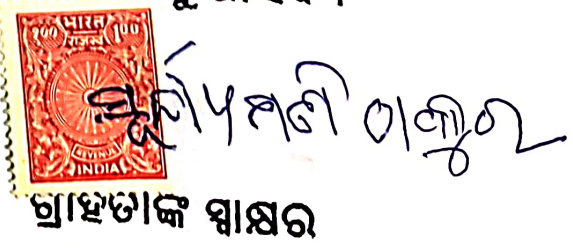 भारत
१०० राजस्व 1.00
REVENUE
INDIA
ସୂର୍ଯ୍ୟମଣୀ ଠାକୁର
ଗ୍ରାହିତାଙ୍କ ସ୍ୱାକ୍ଷର